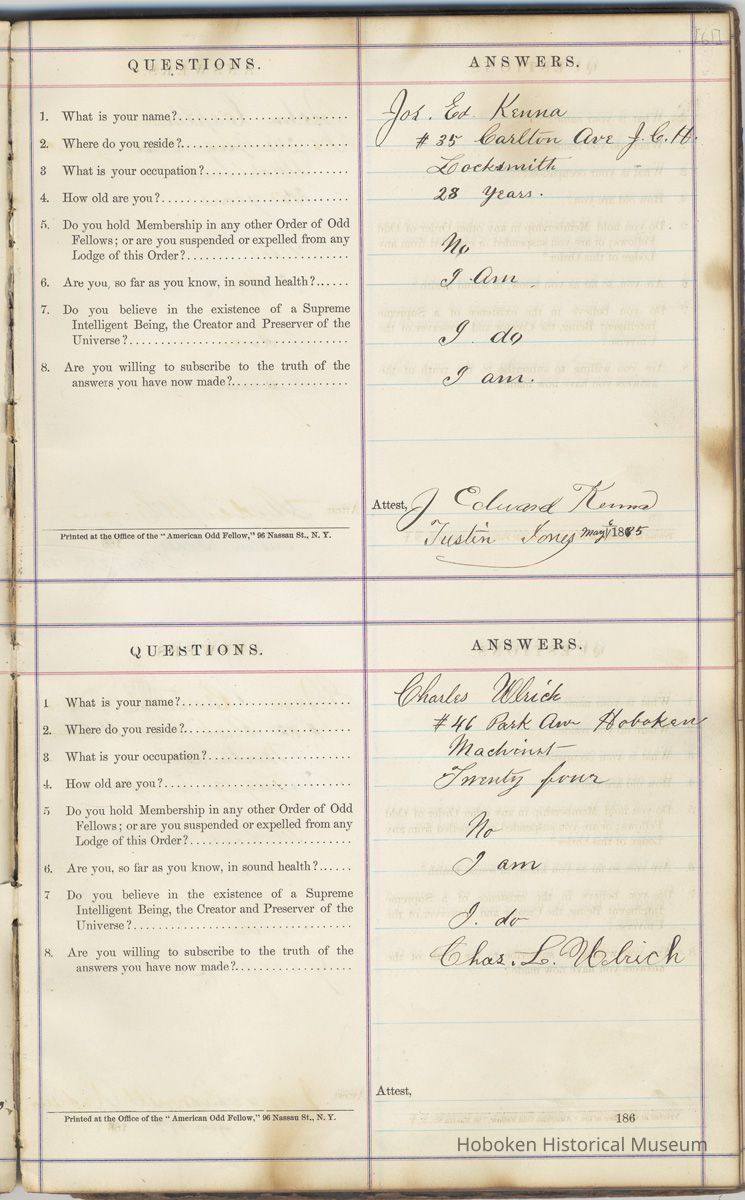 [61]
QUESTIONS. ANSWERS.
1. What is your name?.......................... Jos. Ed Kenna
2. Where do you reside?......................... # 35 Carlton Ave J.C.H.
3 What is your occupation?...................... Locksmith
4. How old are you?............................. 28 Years.
5. Do you hold Membership in any other Order of Odd
Fellows; or are you suspended or expelled from any
Lodge of this Order?......................... No
6. Are you, so far as you know, in sound health?...... I Am
7. Do you believe in the existence of a Supreme
Intelligent Being, the Creator and Preserver of the
Universe?.................................. I do
8. Are you willing to subscribe to the truth of the
answers you have now made?.................. I am.
Attest, J Edward Kenna
Printed at the Office of the "American Odd Fellow," 96 Nassau St., N. Y.
Justin Jones May 1885
QUESTIONS. ANSWERS.
1 What is your name?.......................... Charles Ulrick
2. Where do you reside?......................... # 46 Park Ave Hoboken
3 What is your occupation?...................... Machinist
4. How old are you?............................. Twenty four
5 Do you hold Membership in any other Order of Odd
Fellows; or are you suspended or expelled from any
Lodge of this Order?......................... No
6. Are you, so far as you know, in sound health?...... I am
7 Do you believe in the existence of a Supreme
Intelligent Being, the Creator and Preserver of the
Universe?.................................. I. do
8. Are you willing to subscribe to the truth of the
answers you have now made?.................. Chas. L. Ulrich
Attest,
Printed at the Office of the "American Odd Fellow," 96 Nassau St., N. Y. 186
Hoboken Historical Museum